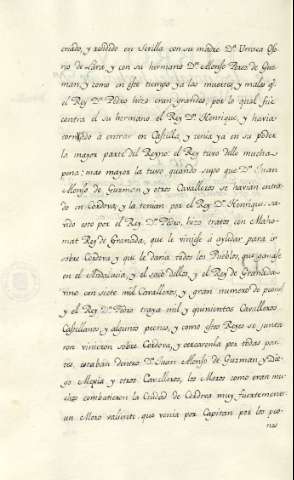 criado, y residido en Sevilla con su madre Dª. Urraca Oso-
rio de Lara y con su hermano Dn. Alonso Perez de Guz-
man, y como en este tiempo ya las muertes y males qe.
el Rey Dn. Pedro hizo eran grandes; por lo qual fue
contra el su hermano el Rey Dn. Henrique, y havia
comenzado á entrar en Castilla, y tenia ya en su poder
la mayor parte del Reyno: el Rey tuvo dello mucha
pena: mas mayor la tuvo quando supo que Dn. Juan
Alonso de Guzman y otros Cavalleros se havian entra-
do en Cordova, y la tenian por el Rey Dn. Henrique. Sa-
vido esto por el Rey Dn. Pedro, hizo tratos con Maho-
mat Rey de Granada, que le viniese á ayudar para ir
sobre Cordova y que le daria todos los Pueblos, que ganase
en el Andalucia, y el saco dellos, y el Rey de Granada
vino con siete mil Cavalleros, y gran numero de peones
y el Rey Dn. Pedro traya mil y quinientos Cavalleros
Castellanos y algunos peones, y como estos Reyes se junta-
ron vinieron sobre Cordova, y cercaronla por todas par-
tes, estaban dentro Dn. Juan Alonso de Guzman y Die-
go Mexia y otros Cavalleros, los Moros como eran mu-
chos combatieron la Ciudad de Cordova muy fuertemente:
un Moro valiente que venia por Capitan por los peo-
nes